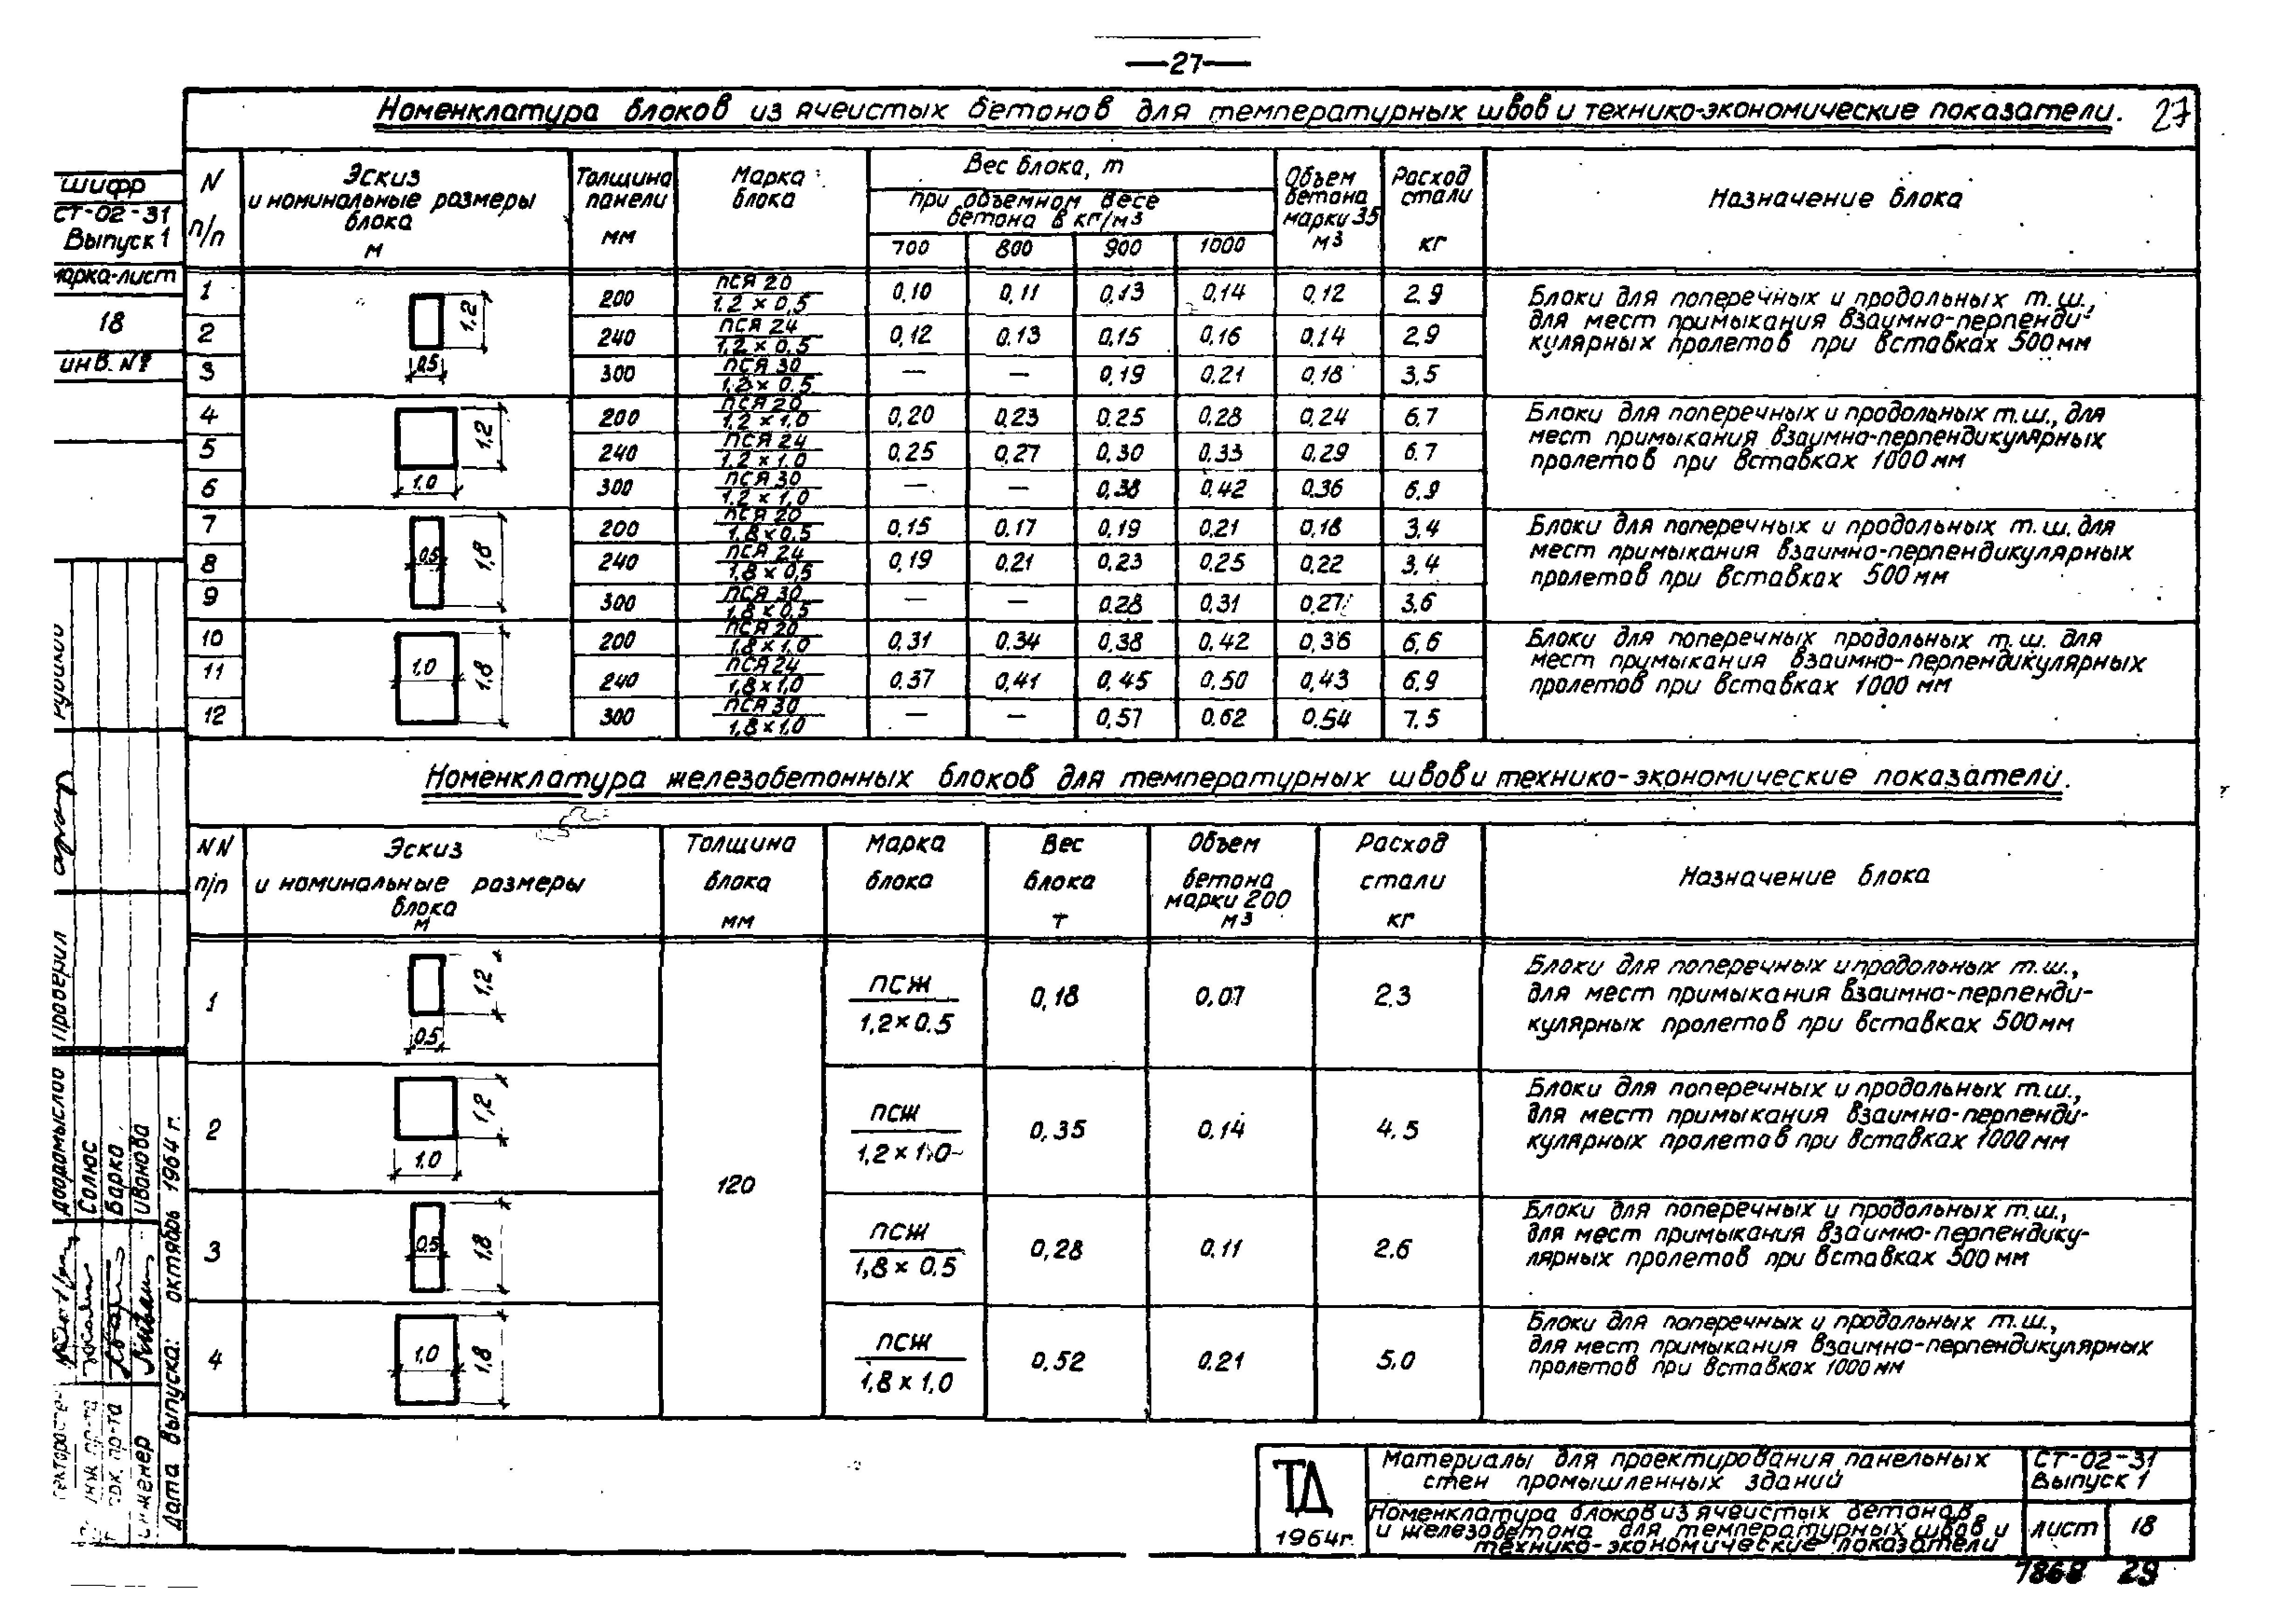 —27—
Номенклатура блоков из ячеистых бетонов для температурных швов и технико-экономические показатели. 27
шифр
СТ-02-31
Выпуск 1
марка-лист
18
инв. №
N п/п | Эскиз и номинальные размеры блока м | Толщина панели мм | Марка блока | Вес блока, т при объемном весе бетона в кг/м3 | Объем бетона марки 35 м3 | Расход стали кг | Назначение блока
700 800 900 1000
1 200 ПСЯ 20 / 1.2 × 0,5 0,10 0,11 0,13 0,14 0,12 2.9
2 240 ПСЯ 24 / 1.2 × 0.5 0,12 0.13 0,15 0,16 0,14 2,9
3 300 ПСЯ 30 / 1.2 × 0.5 — — 0,19 0,21 0,18 3,5
1,2
0,5
Блоки для поперечных и продольных т.ш.,
для мест примыкания взаимно-перпенди-
кулярных пролетов при вставках 500 мм
4 200 ПСЯ 20 / 1.2 × 1,0 0,20 0,23 0.25 0,28 0,24 6.7
5 240 ПСЯ 24 / 1.2 × 1.0 0.25 0,27 0,30 0,33 0.29 6.7
6 300 ПСЯ 30 / 1.2 × 1,0 — — 0,38 0,42 0.36 6.9
1,2
1.0
Блоки для поперечных и продольных т.ш., для
мест примыкания взаимно-перпендикулярных
пролетов при вставках 1000 мм
7 200 ПСЯ 20 / 1.8 × 0.5 0,15 0,17 0,19 0,21 0,18 3,4
8 240 ПСЯ 24 / 1,8 × 0,5 0,19 0,21 0,23 0,25 0,22 3,4
9 300 ПСЯ 30 / 1,8 × 0.5 — — 0.28 0,31 0,27 3,6
0,5
1,8
Блоки для поперечных и продольных т.ш. для
мест примыкания взаимно-перпендикулярных
пролетов при вставках 500 мм
10 200 ПСЯ 20 / 1,8 × 1,0 0,31 0,34 0,38 0,42 0,36 6,6
11 240 ПСЯ 24 / 1,8 × 1,0 0,37 0,41 0,45 0.50 0,43 6.9
12 300 ПСЯ 30 / 1,8 × 1,0 — — 0,57 0.62 0.54 7.5
1.0
1.8
Блоки для поперечных продольных т.ш. для
мест примыкания взаимно-перпендикулярных
пролетов при вставках 1000 мм
Номенклатура железобетонных блоков для температурных швов и технико-экономические показатели.
NN п/п | Эскиз и номинальные размеры блока м | Толщина блока мм | Марка блока | Вес блока т | Объем бетона марки 200 м3 | Расход стали кг | Назначение блока
1 ПСЖ / 1,2 × 0.5 0,18 0,07 2.3
1,2
0.5
Блоки для поперечных и продольных т.ш.,
для мест примыкания взаимно-перпенди-
кулярных пролетов при вставках 500 мм
2 ПСЖ / 1,2 × 1,0 0,35 0.14 4.5
1,2
1.0
Блоки для поперечных и продольных т.ш.,
для мест примыкания взаимно-перпенди-
кулярных пролетов при вставках 1000 мм
120
3 ПСЖ / 1,8 × 0.5 0,28 0.11 2.6
0.5
1,8
Блоки для поперечных и продольных т.ш.,
для мест примыкания взаимно-перпендику-
лярных пролетов при вставках 500 мм
4 ПСЖ / 1,8 × 1,0 0.52 0.21 5,0
1,0
1,8
Блоки для поперечных и продольных т.ш.,
для мест примыкания взаимно-перпендикулярных
пролетов при вставках 1000 мм
Проверил
Солюс
Барко
Иванова
Дата выпуска: октябрь 1964 г.
ТД
1964г.
Материалы для проектирования панельных
стен промышленных зданий
СТ-02-31
Выпуск 1
Номенклатура блоков из ячеистых бетонов
и железобетона для температурных швов и
технико-экономические показатели
лист 18
7868 29